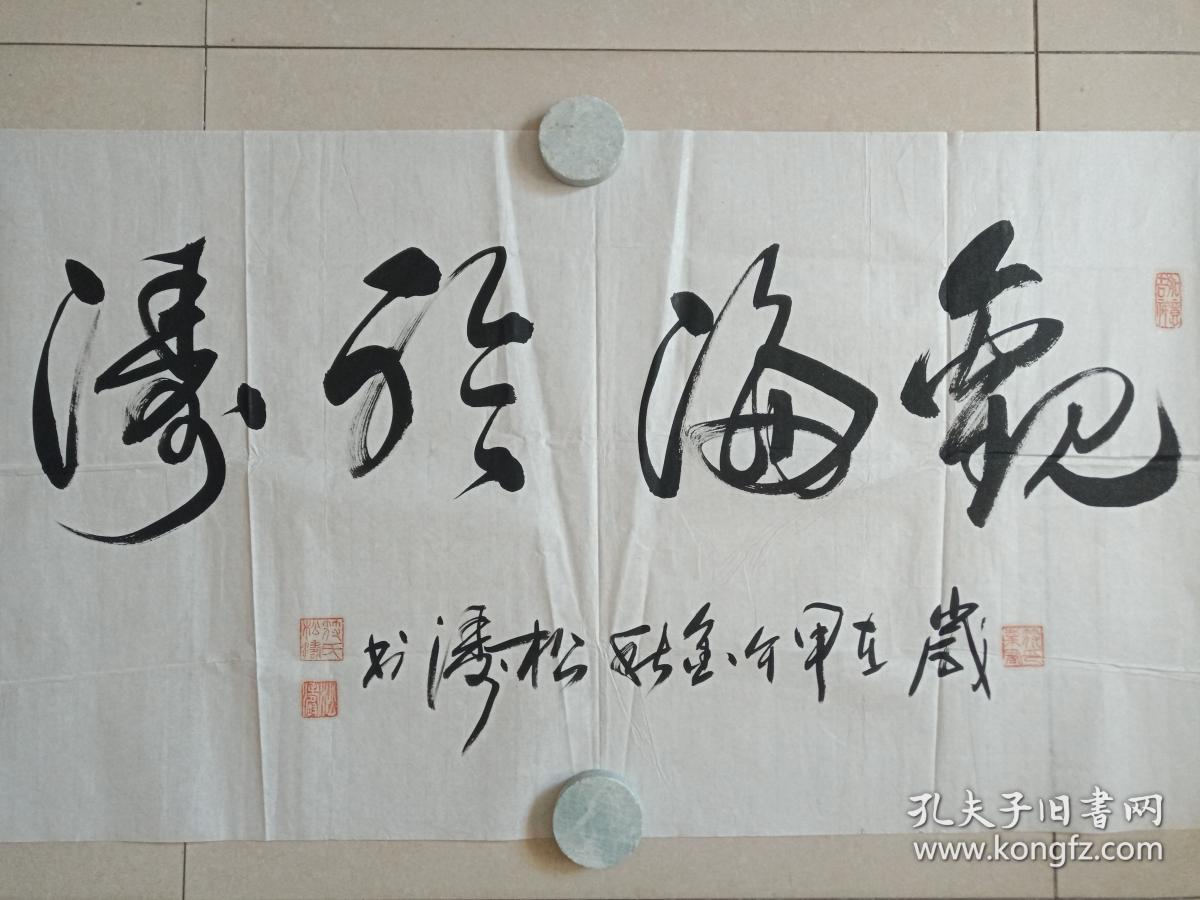 觀海於濤
歲在甲午金秋松濤书
孔夫子旧书网
www.kongfz.com